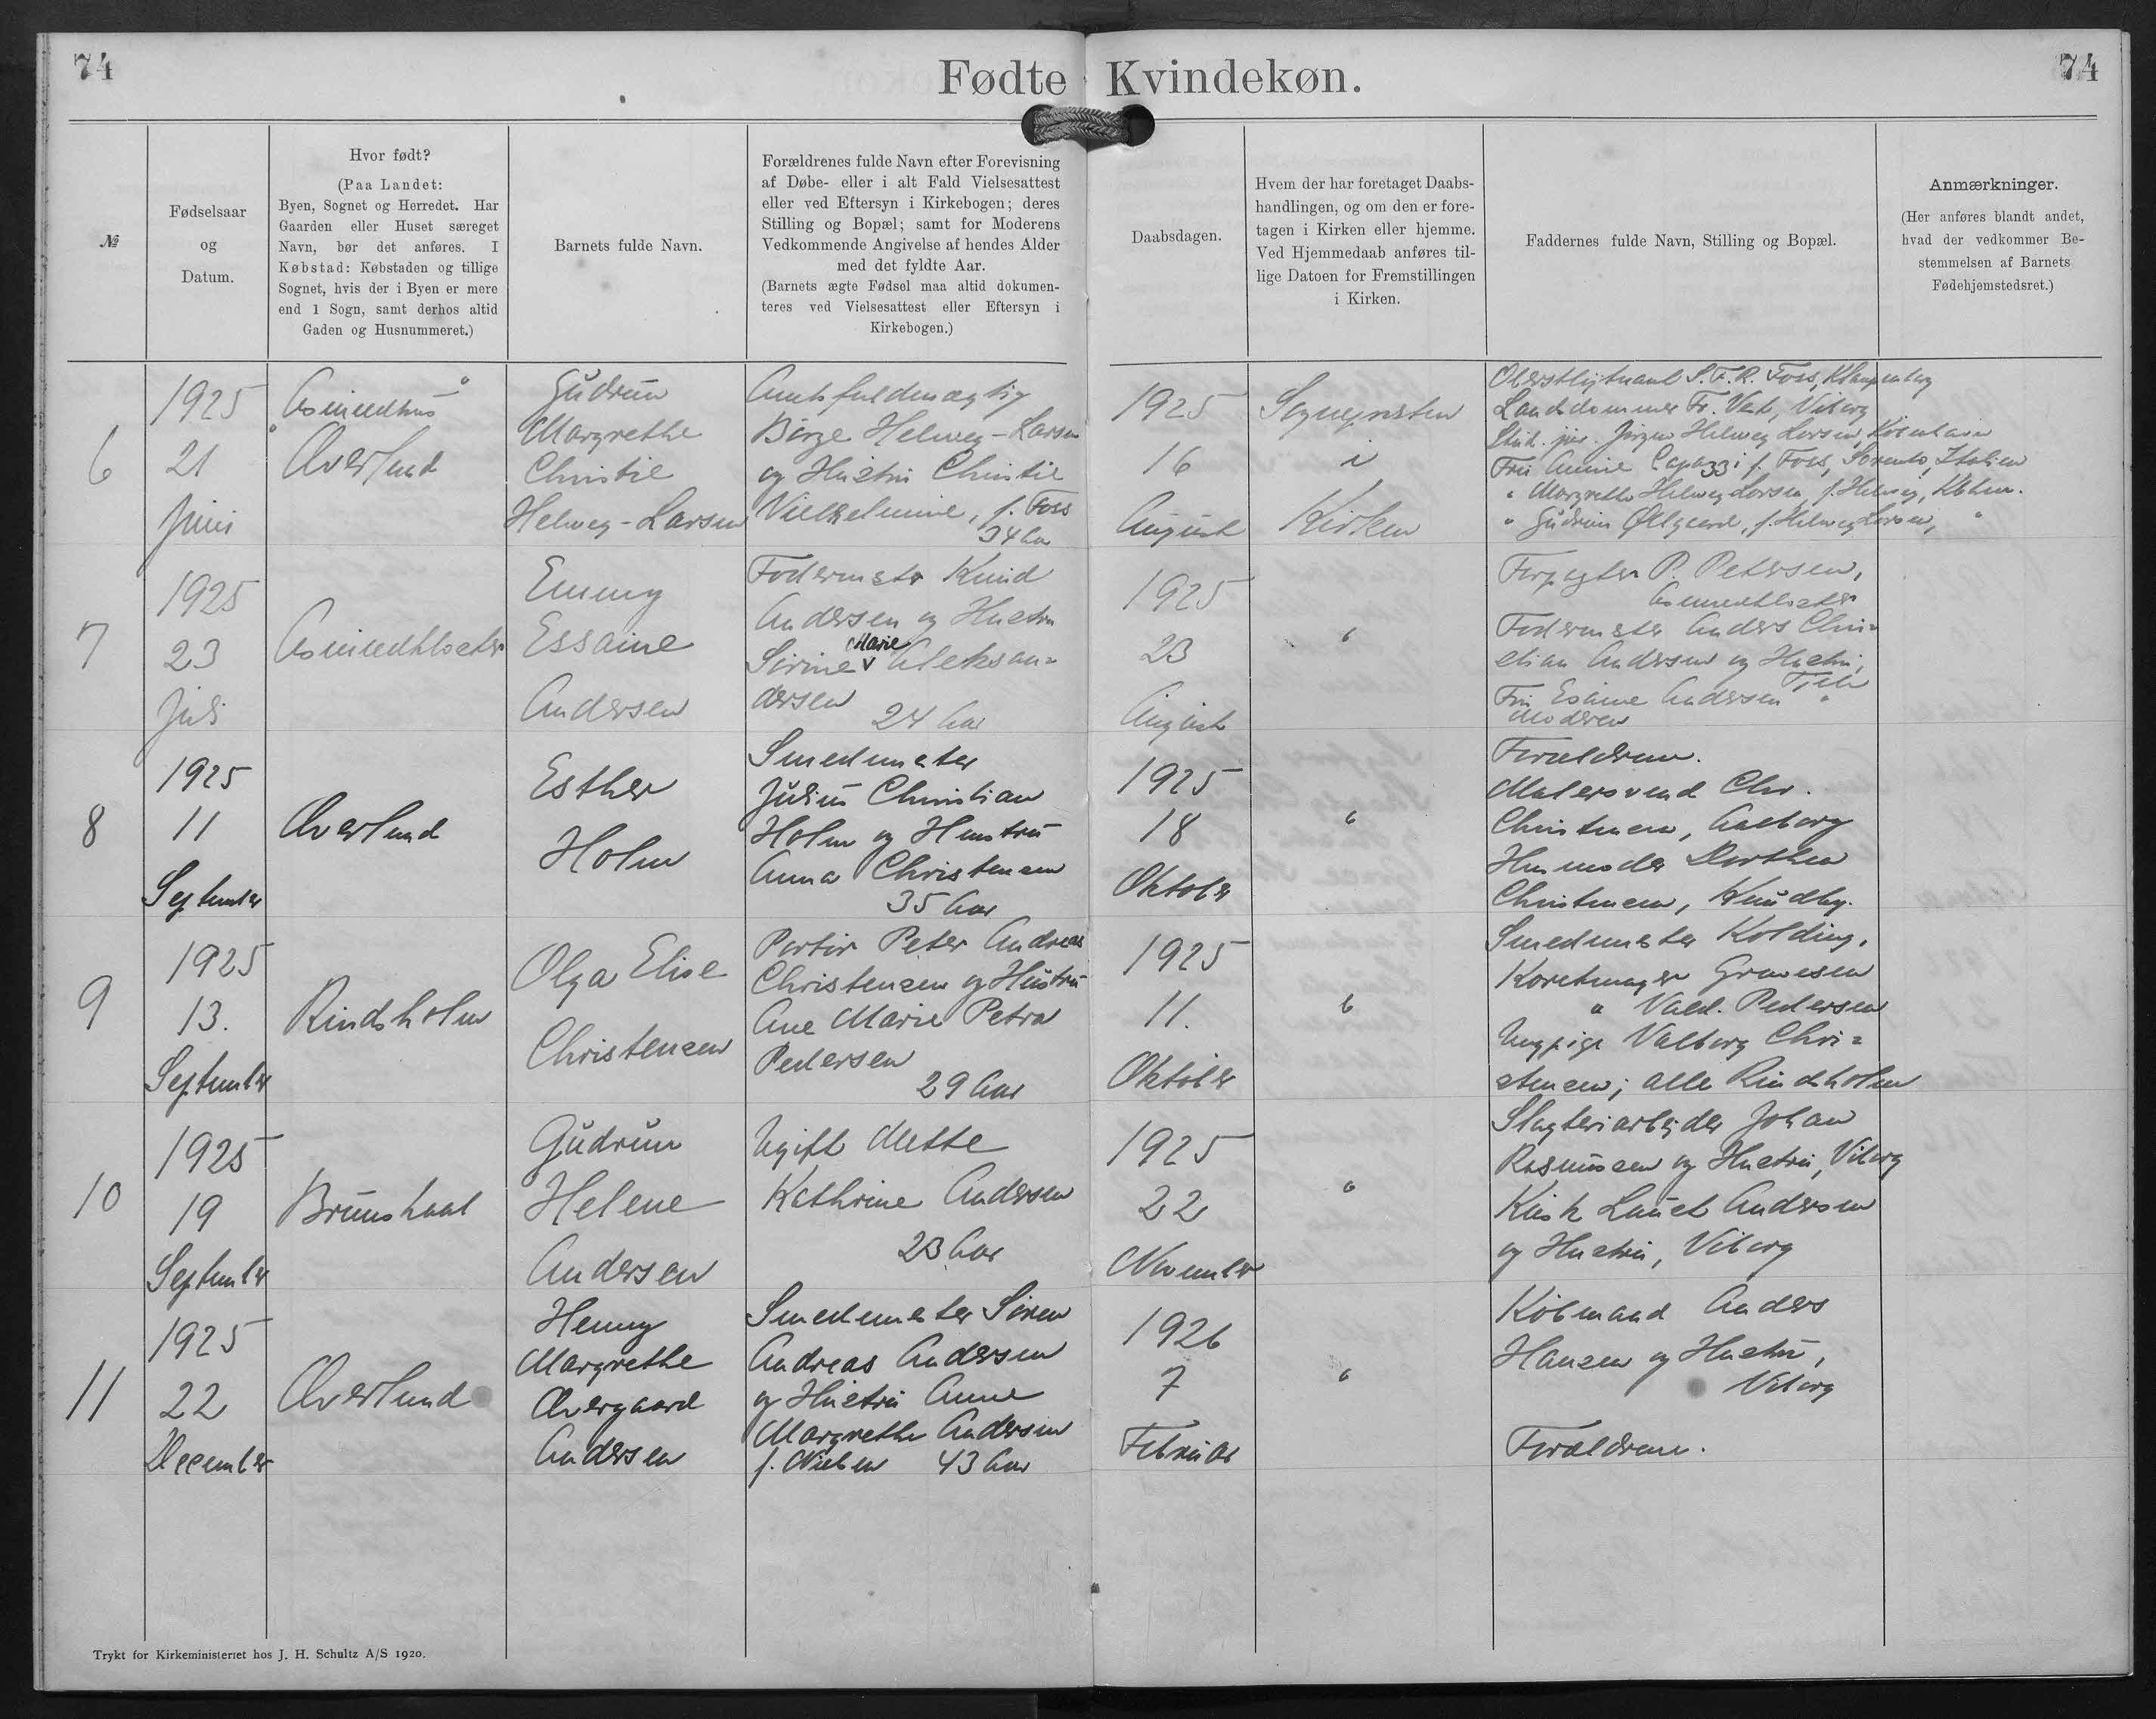 74
Fødte Kvindekøn.
74
№
Fødselsaar
og
Datum.
Hvor født?
(Paa Landet:
Byen, Sognet og Herredet. Har
Gaarden eller Huset særeget
Navn, bør det anføres. I
Købstad: Købstaden og tillige
Sognet, hvis der i Byen er mere
end 1 Sogn, samt derhos altid
Gaden og Husnummeret.)
Barnets fulde Navn.
Forældrenes fulde Navn efter Forevisning
af Døbe- eller i alt Fald Vielsesattest
eller ved Eftersyn i Kirkebogen; deres
Stilling og Bopæl; samt for Moderens
Vedkommende Angivelse af hendes Alder
med det fyldte Aar.
(Barnets ægte Fødsel maa altid dokumen-
teres ved Vielsesattest eller Eftersyn i
Kirkebogen.)
Daabsdagen.
Hvem der har foretaget Daabs-
handlingen, og om den er fore-
tagen i Kirken eller hjemme.
Ved Hjemmedaab anføres til-
lige Datoen for Fremstillingen
i Kirken.
Faddernes fulde Navn, Stilling og Bopæl.
Anmærkninger.
(Her anføres blandt andet,
hvad der vedkommer Be-
stemmelsen af Barnets
Fødehjemstedsret.)
6
1925
21
Juni
Asmindhus
Øverlund
Gudrun
Margrethe
Christie
Helweg-Larsen
Amtsfuldmægtig
Børge Helweg-Larsen
og Hustru Christie
Vilhelmine, f. Foss
34 Aar
1925
16
August
Sognepresten
i
Kirken
Oberstløjtnant S. F. R. Foss, Klampenborg
Landsdommer Fr. Vest, Viborg
Stud. jur. Jørgen Helweg Larsen, København
Fru Annie Capazzi f. Foss, Sorento, Italien
" Margrethe Helweg Larsen, f. Helweg, Kbhvn.
" Gudrun Østgaard, f. Helweg Larsen, "
7
1925
23
Juli
Asmindkloster
Emmy
Essaine
Andersen
Fodermester Knud
Andersen og Hustru
Sørine Marie Aleksan=
dersen
24 Aar
1925
23
August
"
Forpagter P. Petersen,
Asmindkloster
Fodermester Anders Chri=
stian Andersen og Hustru,
Tjele
Fru Esaine Andersen "
Moderen
8
1925
11
September
Øverlund
Esther
Holm
Smedemester
Julius Christian
Holm og Hustru
Anna Christensen
35 Aar
1925
18
Oktober
"
Forældrene.
Malersvend Chr.
Christensen, Aalborg
Husmoder Dorthea
Christensen, Knudby.
9
1925
13.
September
Rindsholm
Olga Elise
Christensen
Portør Peter Andreas
Christensen og Hustru
Ane Marie Petra
Pedersen
29 Aar
1925
11.
Oktober
"
Smedemester Kolding.
Karetmager Gravesen
" Vald. Pedersen
Ungpige Valborg Chri=
stensen; alle Rindsholm
10
1925
19
September
Brunshaab
Gudrun
Helene
Andersen
Ugift Mette
Kathrine Andersen
23 Aar
1925
22
November
"
Slagteriarbejder Johan
Rasmussen og Hustru, Viborg
Kusk Laust Andersen
og Hustru, Viborg
11
1925
22
December
Øverlund
Henny
Margrethe
Overgaard
Andersen
Smedemester Søren
Andreas Andersen
og Hustru Anne
Margrethe Andersen
f. Nielsen 43 Aar
1926
7
Februar
"
Købmand Anders
Hansen og Hustru,
Viborg
Forældrene.
Trykt for Kirkeministeriet hos J. H. Schultz A/S 1920.